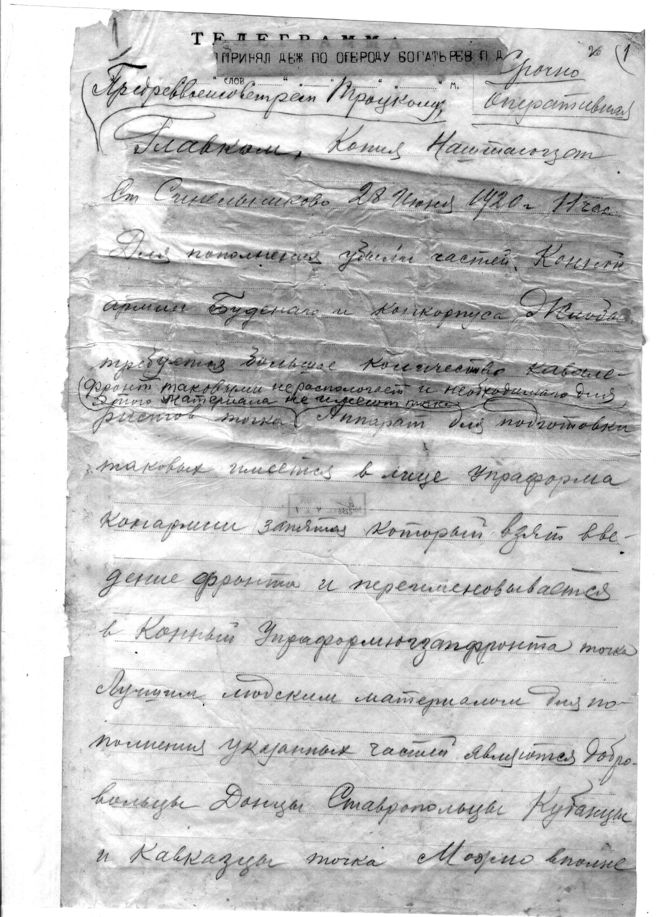 1
ТЕЛЕГРАММА
ПРИНЯЛ ДЕЖ ПО ОГЕРОДУ БОГАТЫРЕВ П Д
1
слов " " " м.
Срочно
Предреввоенсовет Троцкому,
оперативная
Главком, Копия
Ст Синельниково 28 Июня 1920 г 11 час
Для пополнения убыли частей Конной
армии Буденаго и конкорпуса Жлобы
требуется большое количество кавале-
(Фронт таковыми не располагает и необходимого для
этого материала не имеет точка)
ристов точка Аппарат для подготовки
таковых имеется в лице Упраформа
конармии запятая который взят в ве-
дение фронта и переименовывается
в Конный Упраформюгзапфронта точка
Лучшим людским материалом для по-
полнения указанных частей являются добро-
вольцы Донцы Ставропольцы Кубанцы
и Кавказцы точка Можно вполне